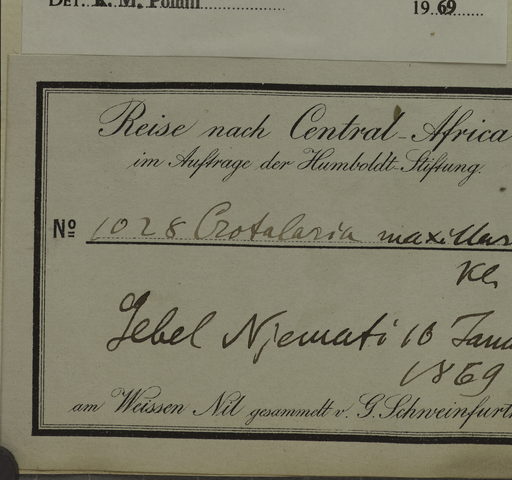 DET. R. M. Polhill 1969
Reise nach Central-Africa
im Auftrage der Humboldt-Stiftung.
Nº 1028 Crotalaria maxillar
Kl.
Gebel Njemati 16 Janu
1869
am Weissen Nil gesammelt v. G. Schweinfurth